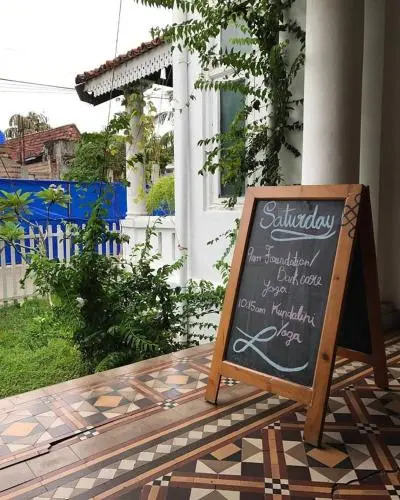 Saturday
9am Foundation/
Back care
Yoga
10:15am Kundalini
Yoga